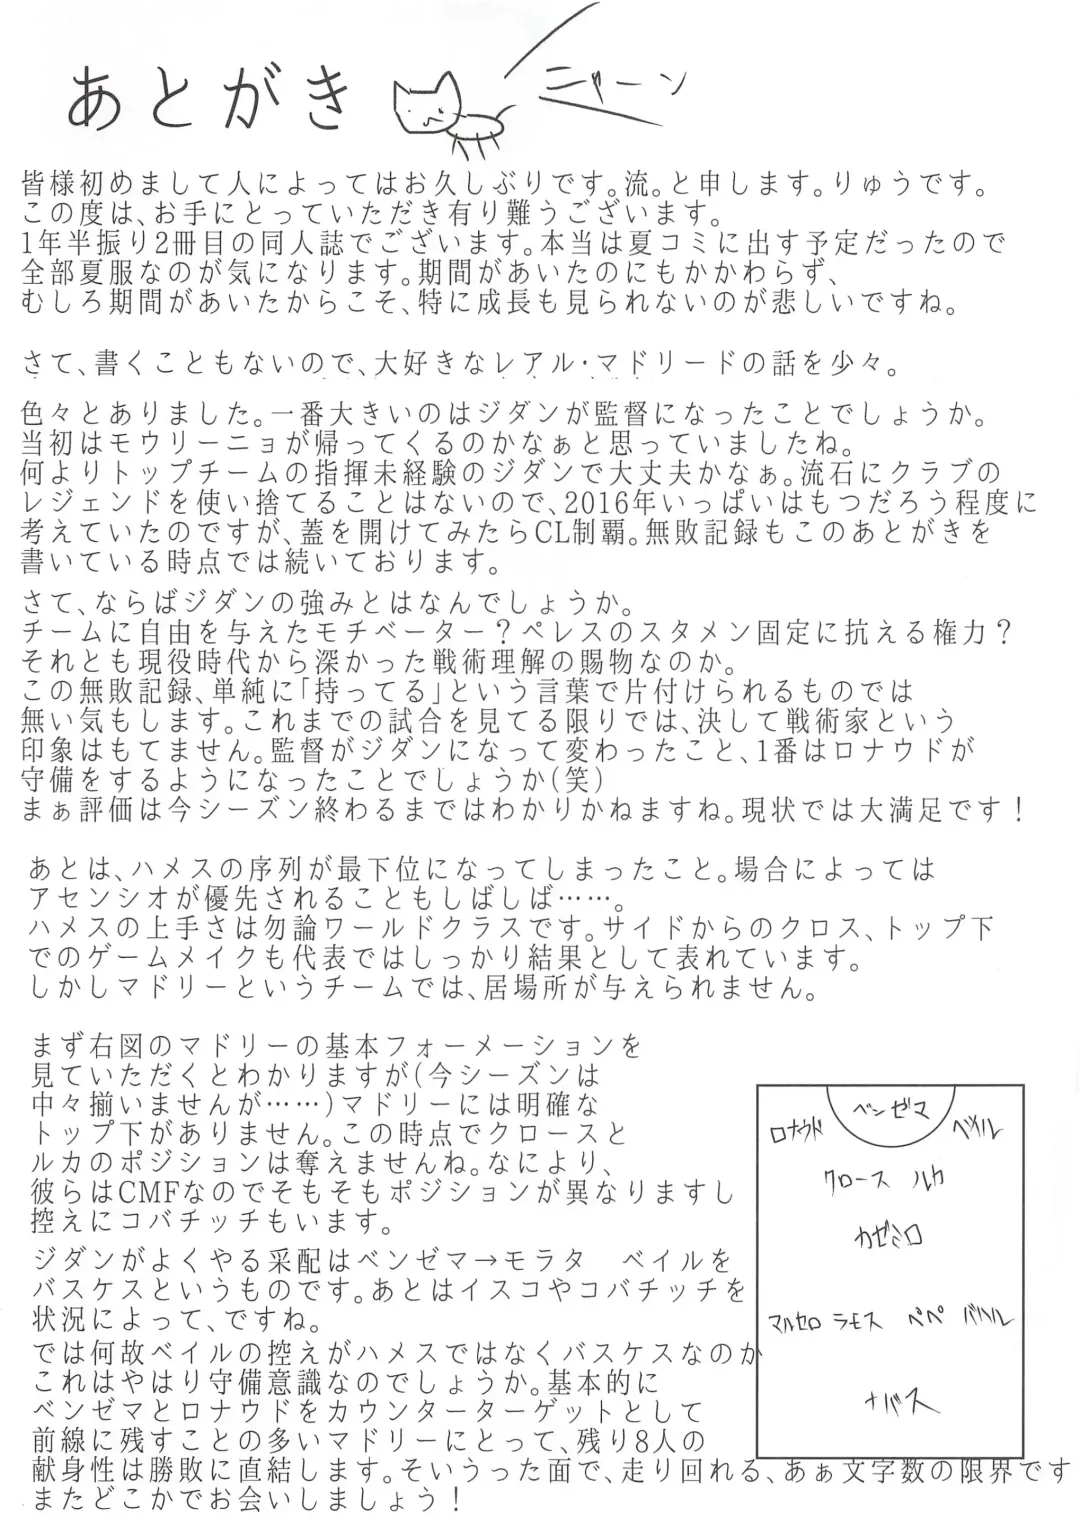 あとがき
ニャーン
皆様初めまして人によってはお久しぶりです。流。と申します。りゅうです。
この度は、お手にとっていただき有り難うございます。
1年半振り2冊目の同人誌でございます。本当は夏コミに出す予定だったので
全部夏服なのが気になります。期間があいたのにもかかわらず、
むしろ期間があいたからこそ、特に成長も見られないのが悲しいですね。
さて、書くこともないので、大好きなレアル・マドリードの話を少々。
色々とありました。一番大きいのはジダンが監督になったことでしょうか。
当初はモウリーニョが帰ってくるのかなぁと思っていましたね。
何よりトップチームの指揮未経験のジダンで大丈夫かなぁ。流石にクラブの
レジェンドを使い捨てることはないので、2016年いっぱいはもつだろう程度に
考えていたのですが、蓋を開けてみたらCL制覇。無敗記録もこのあとがきを
書いている時点では続いております。
さて、ならばジダンの強みとはなんでしょうか。
チームに自由を与えたモチベーター？ペレスのスタメン固定に抗える権力？
それとも現役時代から深かった戦術理解の賜物なのか。
この無敗記録、単純に「持ってる」という言葉で片付けられるものでは
無い気もします。これまでの試合を見てる限りでは、決して戦術家という
印象はもてません。監督がジダンになって変わったこと、1番はロナウドが
守備をするようになったことでしょうか(笑)
まぁ評価は今シーズン終わるまではわかりかねますね。現状では大満足です！
あとは、ハメスの序列が最下位になってしまったこと。場合によっては
アセンシオが優先されることもしばしば……。
ハメスの上手さは勿論ワールドクラスです。サイドからのクロス、トップ下
でのゲームメイクも代表ではしっかり結果として表れています。
しかしマドリーというチームでは、居場所が与えられません。
まず右図のマドリーの基本フォーメーションを
見ていただくとわかりますが(今シーズンは
中々揃いませんが……)マドリーには明確な
トップ下がありません。この時点でクロースと
ルカのポジションは奪えませんね。なにより、
彼らはCMFなのでそもそもポジションが異なりますし
控えにコバチッチもいます。
ジダンがよくやる采配はベンゼマ→モラタ　ベイルを
バスケスというものです。あとはイスコやコバチッチを
状況によって、ですね。
では何故ベイルの控えがハメスではなくバスケスなのか
これはやはり守備意識なのでしょうか。基本的に
ベンゼマとロナウドをカウンターターゲットとして
前線に残すことの多いマドリーにとって、残り8人の
献身性は勝敗に直結します。そいうった面で、走り回れる、あぁ文字数の限界です
またどこかでお会いしましょう！
ベンゼマ
ロナウド　ベイル
クロース　ルカ
カゼミロ
マルセロ　ラモス　ペペ　バハル
ナバス